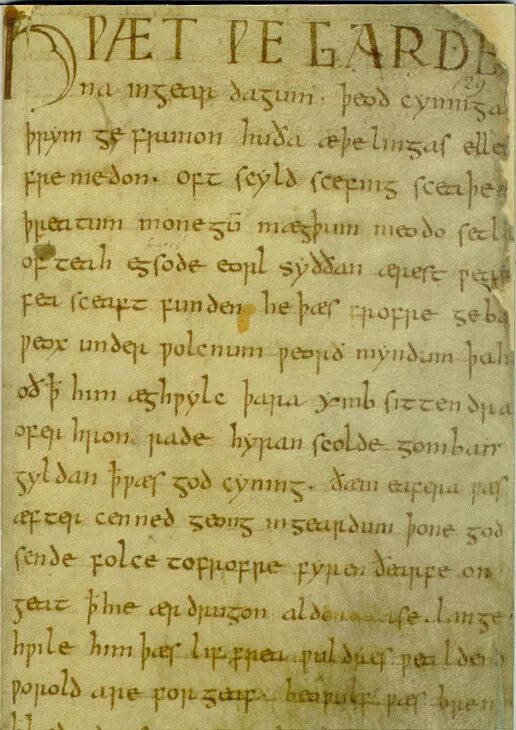 HǷÆT ǷE GARDE
na ingear dagum. þeod cyninga
þrym ge frunon huða æþelingas elle
fremedon. oft scyld scefing sceaþe
þreatum monegū mægþum meodo setla
of teah egsode eorl syððan ærest ƿea
fea sceaft funden he þæs frofre geba
ƿeox under ƿolcnum ƿeorð myndum þah
oð ꝥ him æghƿylc þara ymb sittendra
ofer hron rade hyran scolde gomban
gyldan ꝥ ƿæs god cyning. ðæm eafera ƿæs
æfter cenned geong in geardum þone god
sende folce tofrofre fyren ðearfe on
geat ꝥ hie ær drugon aldor ase. lange
hƿile him þæs lif frea ƿuldres ƿealdend
ƿorold are for geaf. beoƿulf ƿæs breme